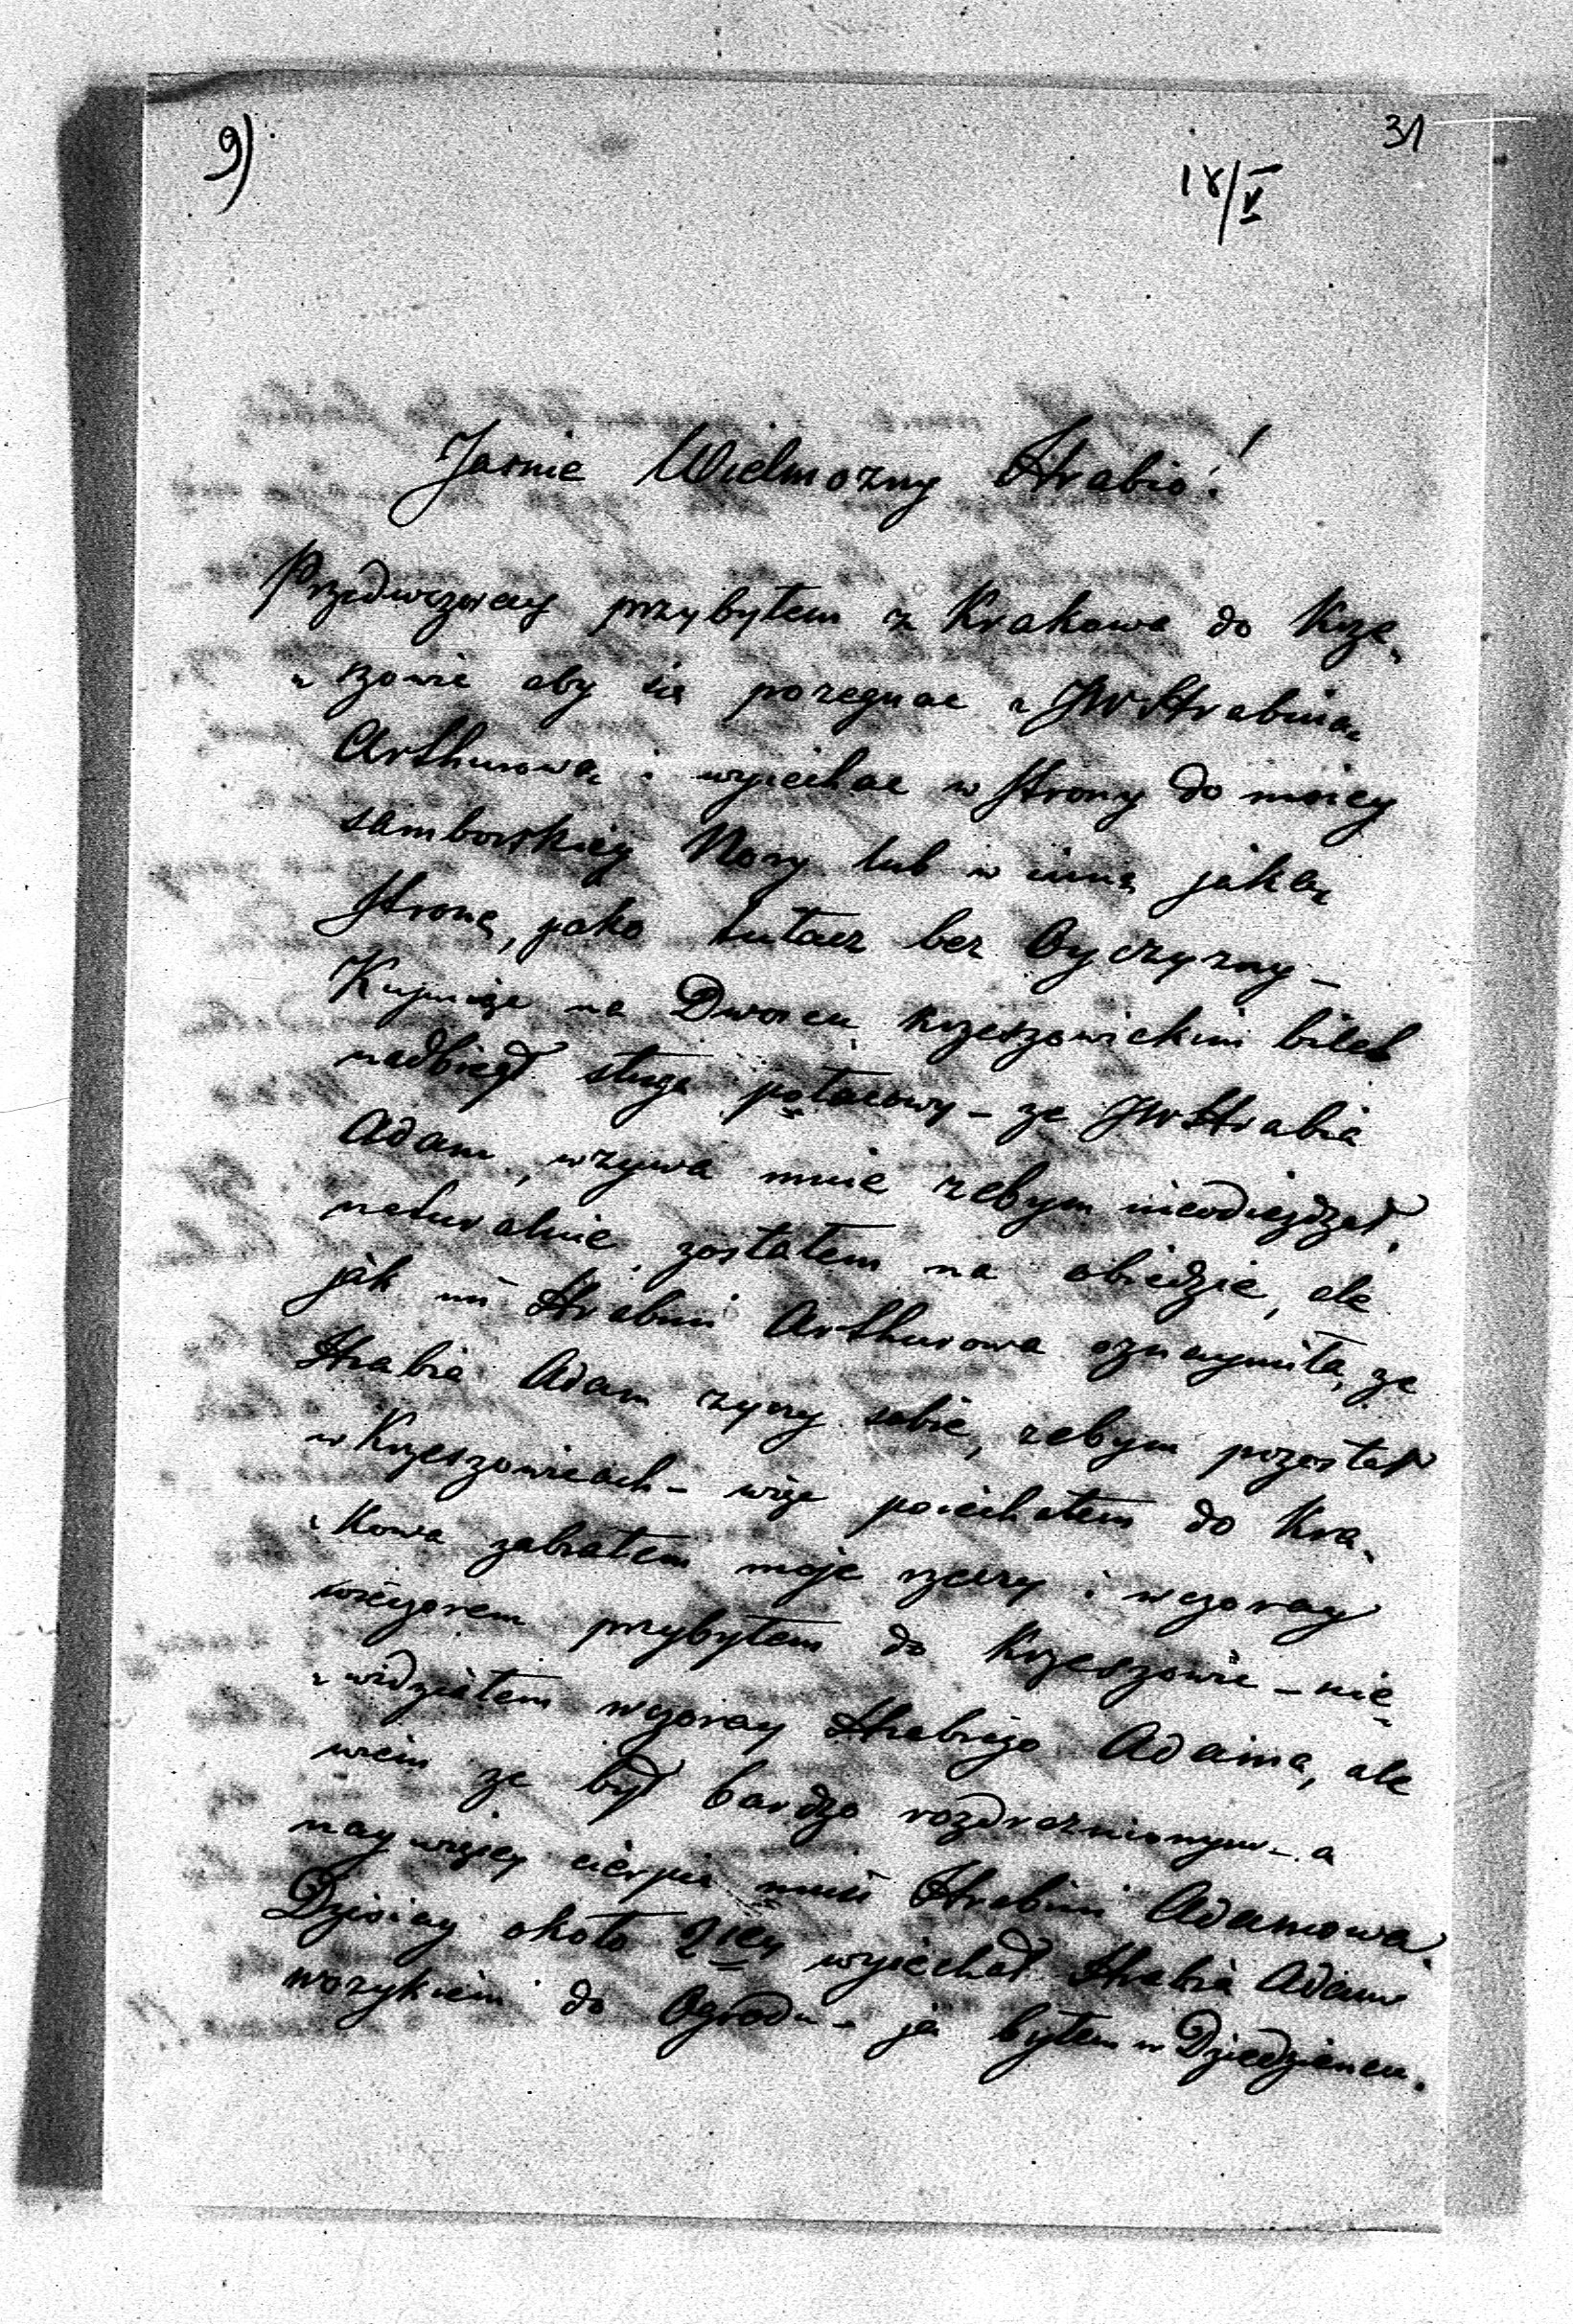 9)
31
18/V
Jasnie Wielmozny Hrabio!
Przedwczoray przybyłem z Krakowa do Krze„
„szowic aby się pozegnac z JWHrabiną
Arthurową i wyiechac w strony do moiey
samborskiey Nory lub w inną jaką
stronę, jako tułacz bez Oyczyzny –
Kupuiąc na Dworcu krzeszowickim bilet
nadbiegł sługa pałacowy – ze JWHrabia
Adam, wzywa mnie zebym nieodiezdzał.
naturalnie zostałem na obiedzie, ale
jak mi Hrabini Arthurowa oznaymiła, ze
Hrabia Adam zyczy sobie, zebym pozostał
w Krzeszowicach – więc poiechałem do Kra„
„kowa zabrałem moje rzeczy i wczoray
wieczorem przybyłem do Krzeszowic – nie„
„widziałem wczoray Hrabiego Adama, ale
wiem ze był bardzo rozdraznionym – a
naywięcey cierpiec musi Hrabini Adamowa.
Dzisiay około 2iey wyiechał Hrabia Adam
wozykiem do Ogrodu – ja byłem w Dziedzincu.